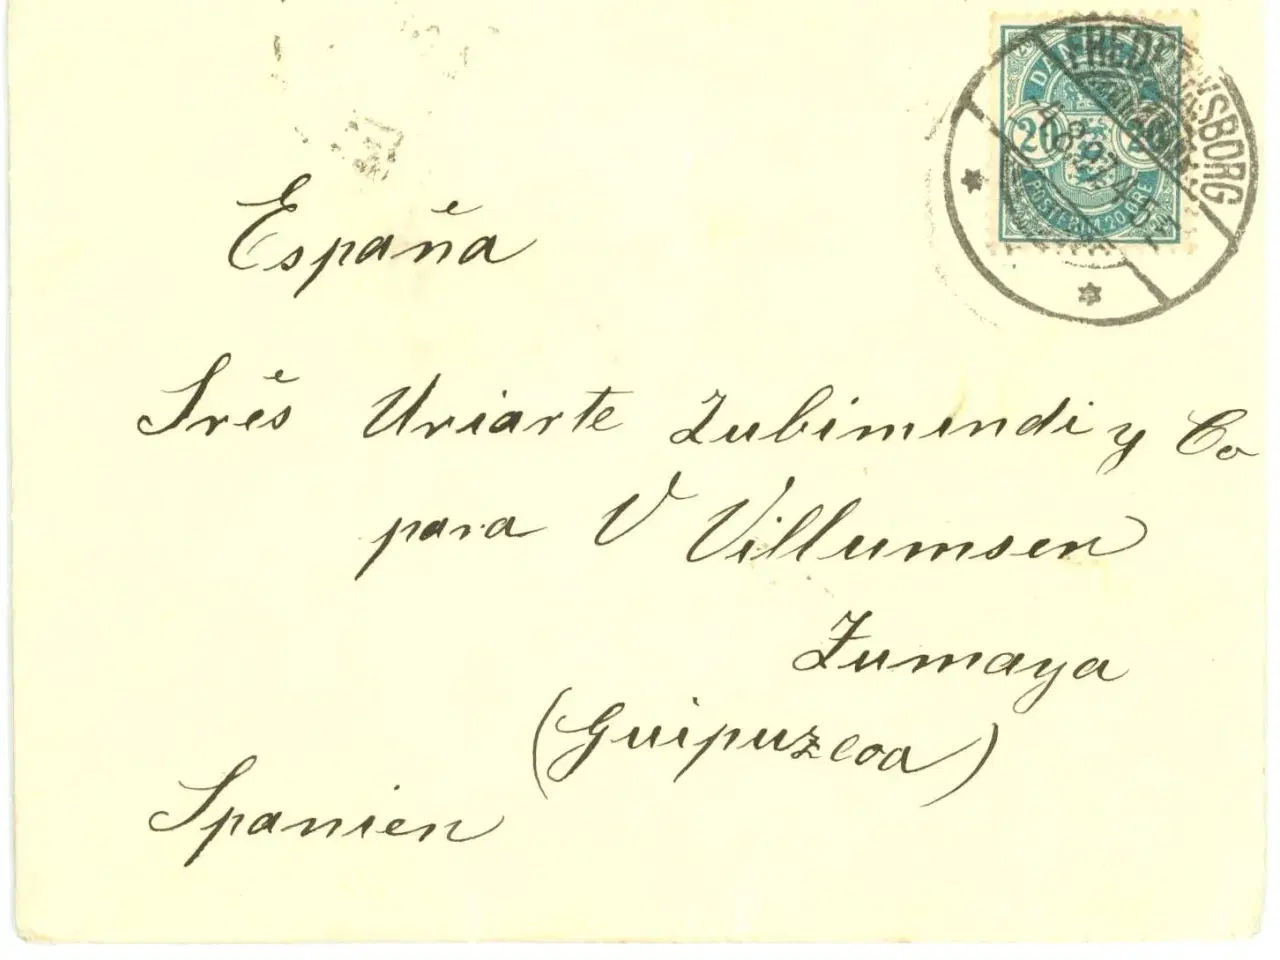 DANMARK
20 20
POSTFRIM. 20 ØRE
España
Srěs Uriarte Zubimendi y Co
para V Villumsen
Zumaya
(Guipuzcoa)
Spanien